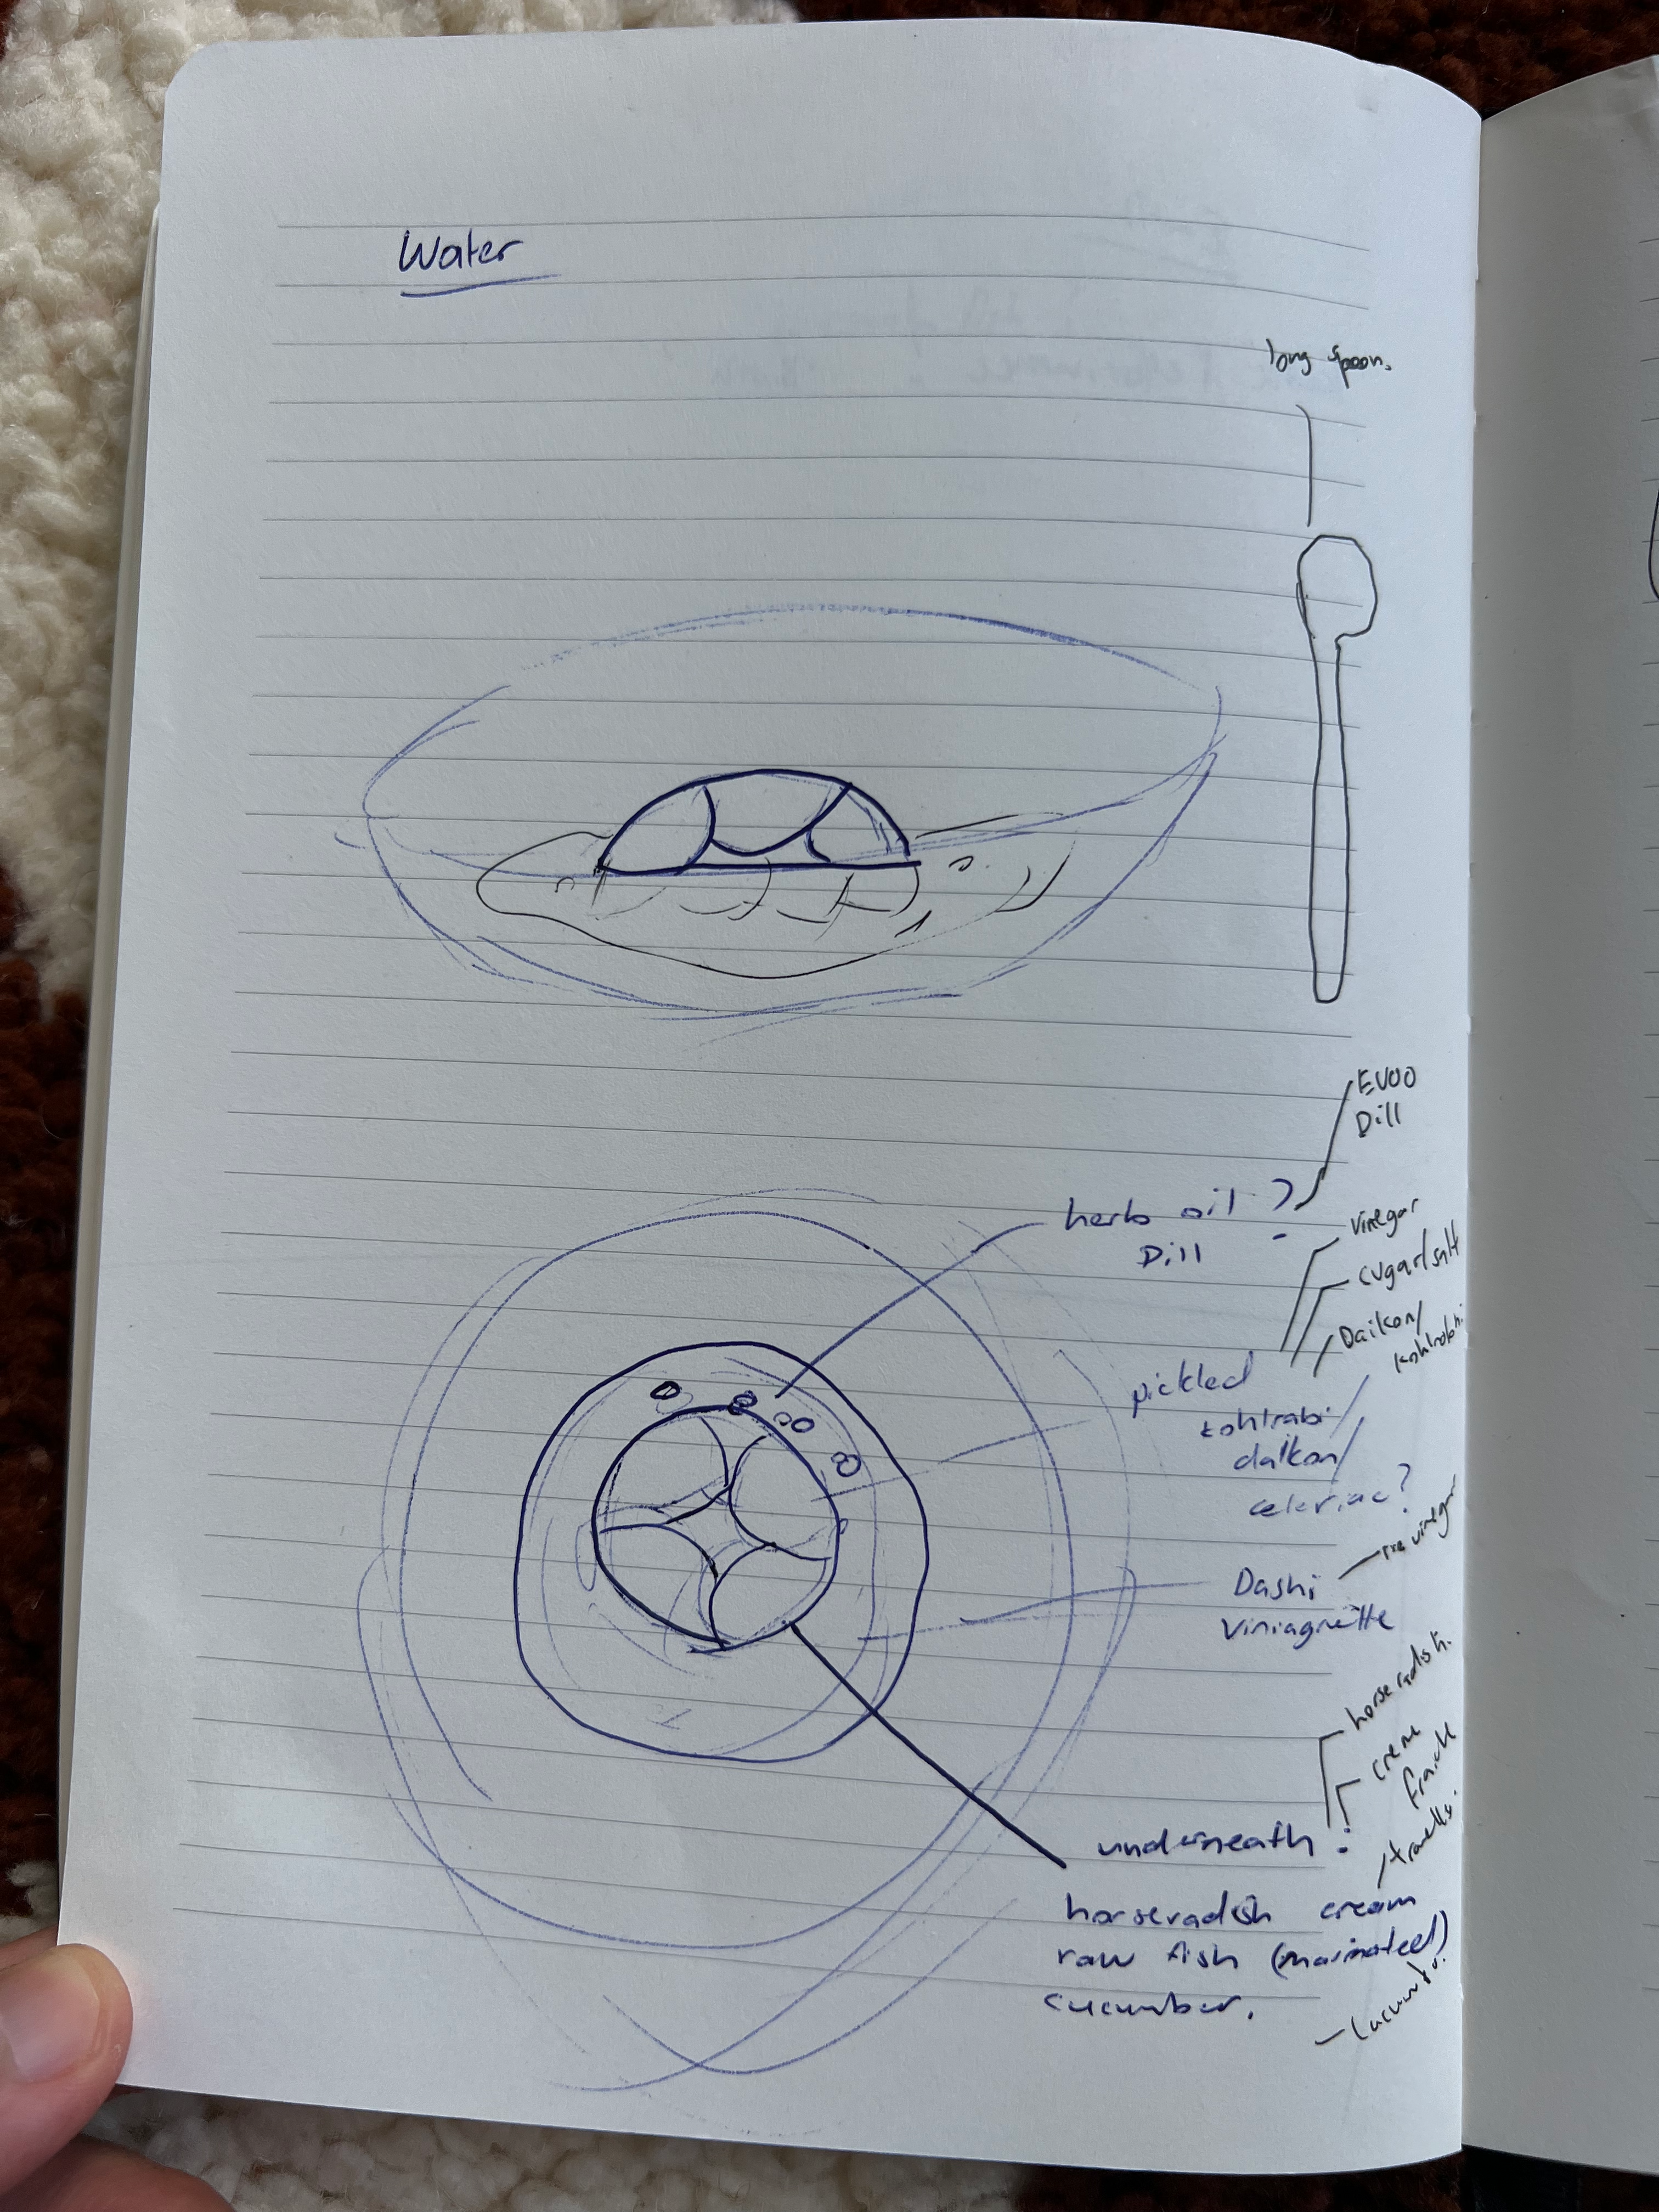 Water
long spoon.
EVOO
Dill
herb oil ?
Dill
vinegar
sugar/salt
Daikon/
kohlrabi
pickled
kohlrabi/
daikon/
celeriac?
vinegar
Dashi
Viniagrette
horseradish.
creme
fraiche
underneath :
horseradish cream
raw fish (marinated)
cucumber.